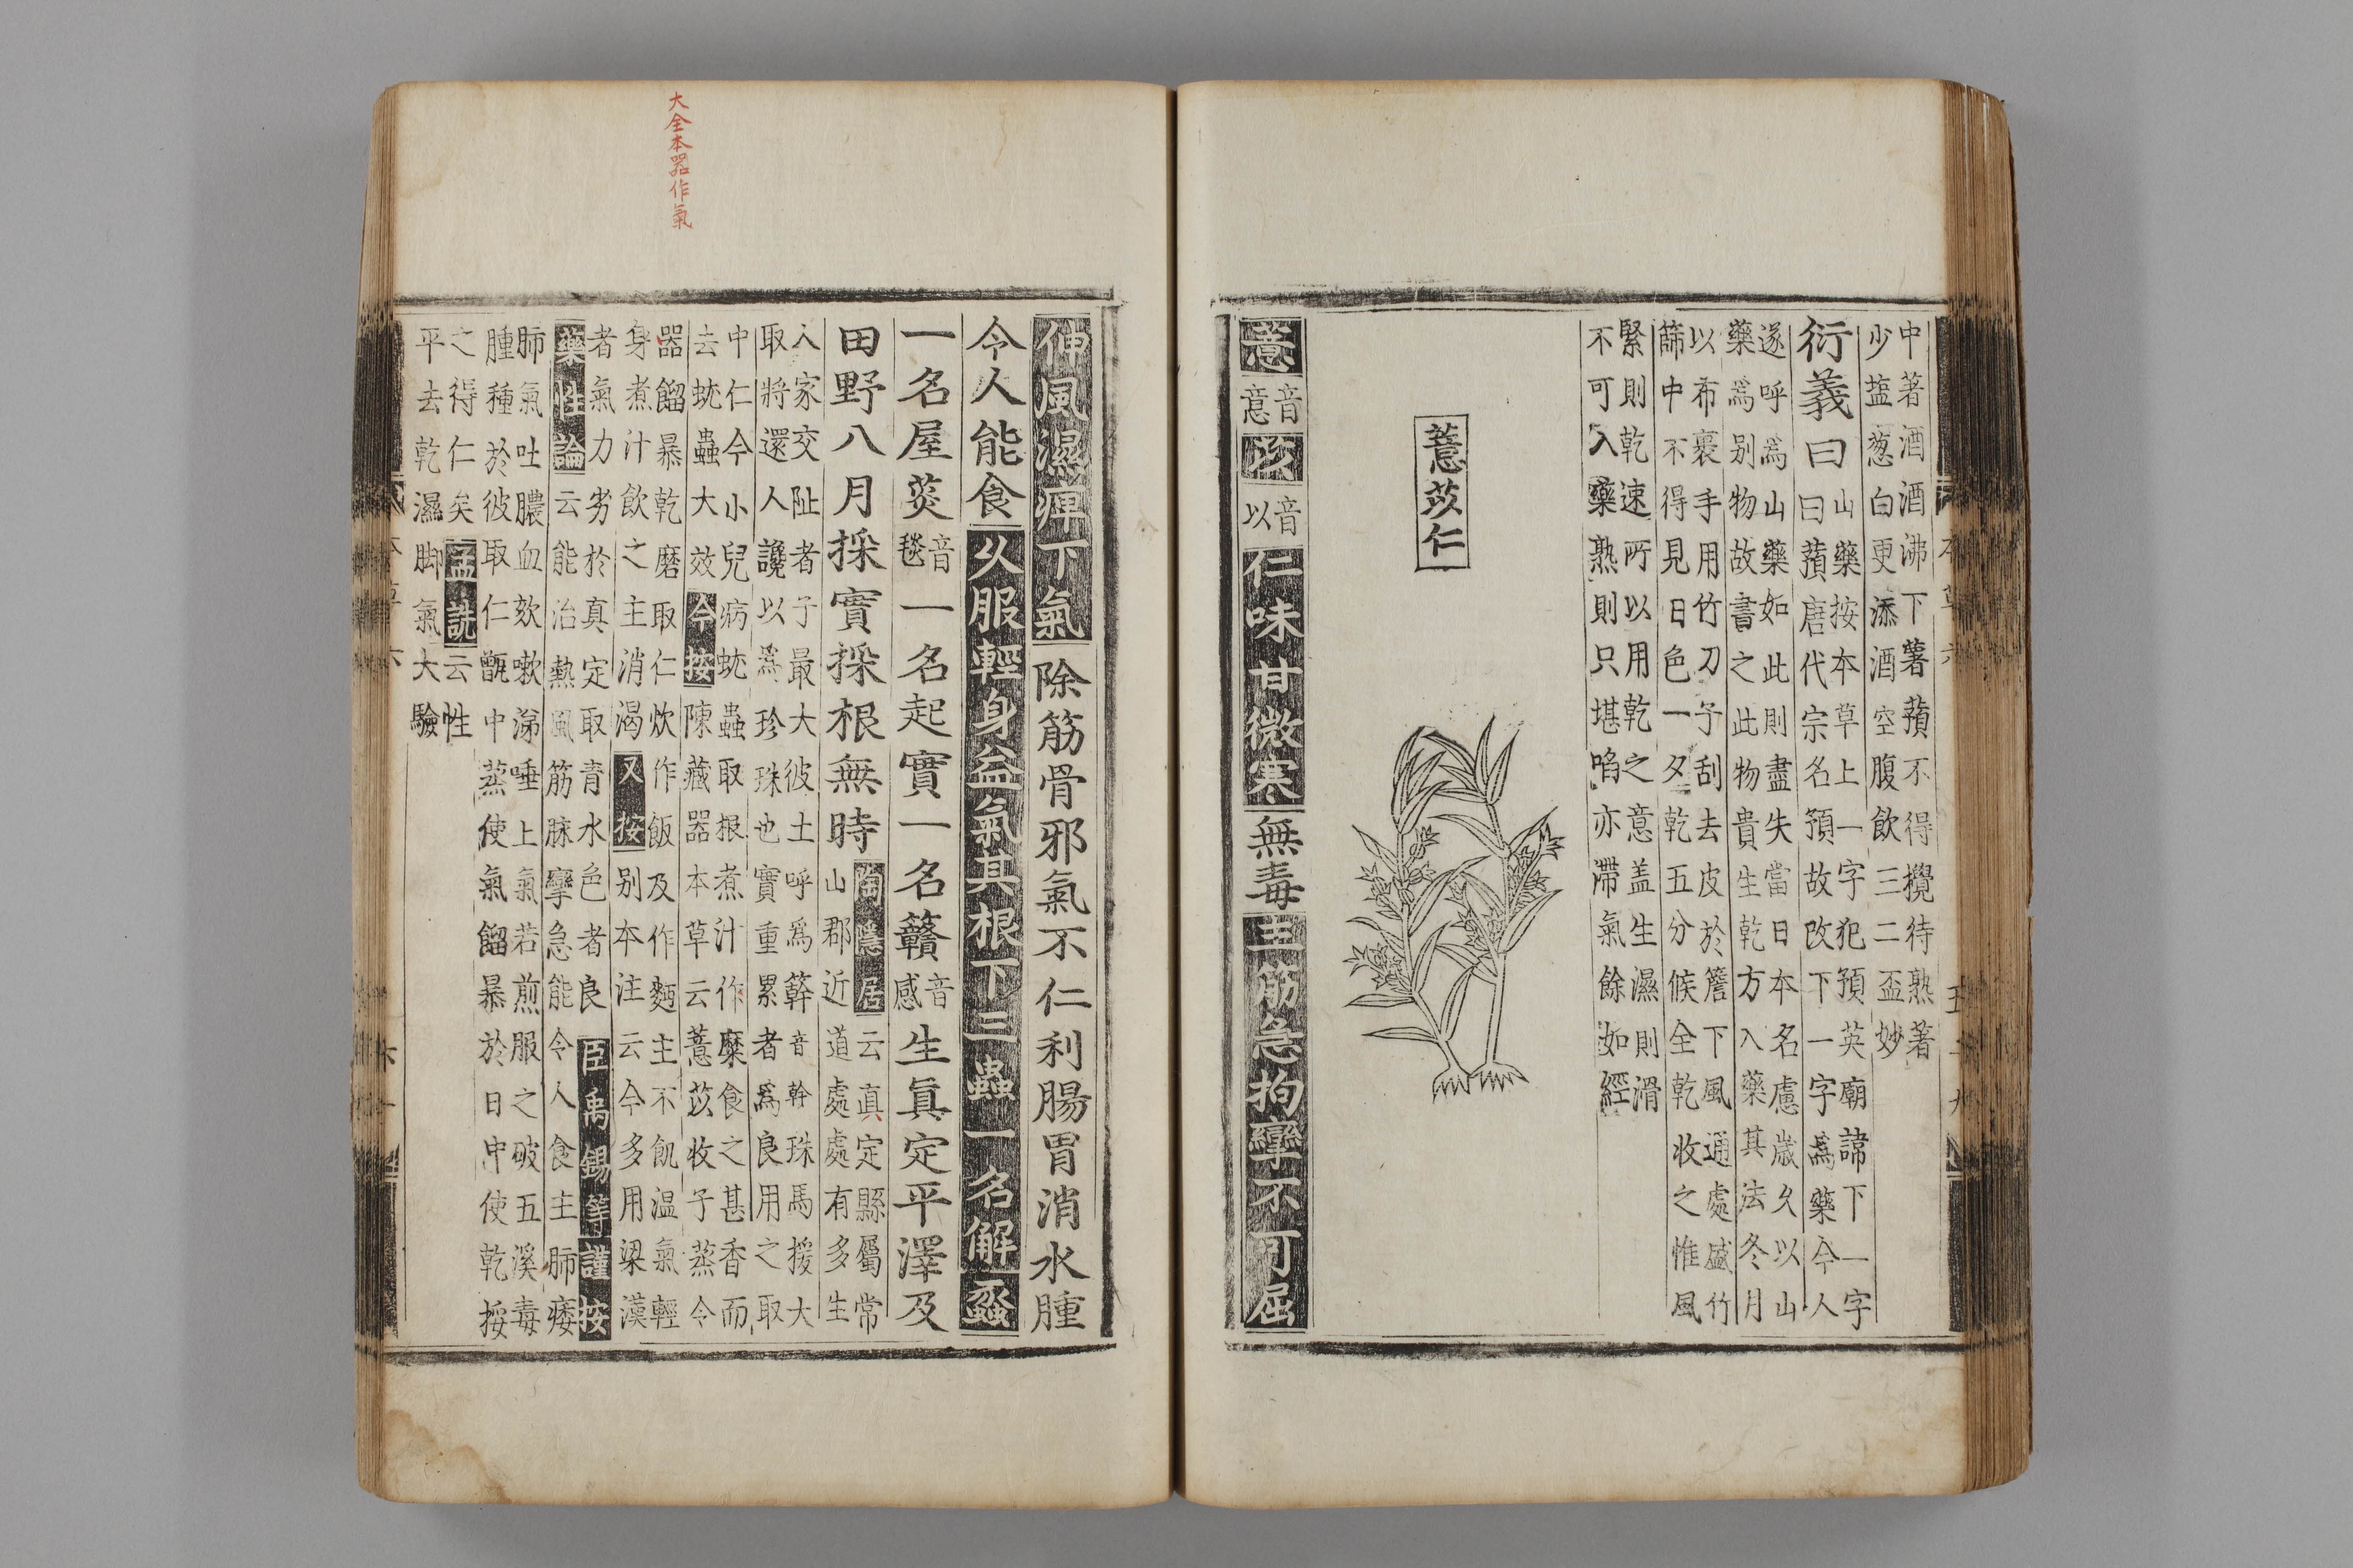 中著酒酒沸下薯蕷不得攪待熟著
少塩葱白更添酒空腹飲三二盃妙
衍義曰
山藥按本草上一字犯預英廟諱下一字
曰蕷唐代宗名預故改下一字爲藥今人
遂呼爲山藥如此則盡失當日本名慮歲久以山
藥爲别物故書之此物貴生乾方入藥其法冬月
以布裹手用竹刀子刮去皮於簷下風通處盛竹
篩中不得見日色一夕乾五分候全乾收之惟風
緊則乾速所以用乾之意盖生濕則滑
不可入藥熟則只堪啗亦滯氣餘如經
薏苡仁
薏音意苡音以仁味甘微寒無毒主筋急拘攣不可屈
伸風濕痺下氣除筋骨邪氣不仁利腸胃消水腫
令人能食久服輕身益氣其根下三蟲一名解蠡
一名屋菼音毯一名起實一名贛音感生眞定平澤及
田野八月採實採根無時
陶隱居云真定縣屬常
山郡近道處處有多生
人家交阯者子最大彼土呼爲簳音幹珠馬援大
取將還人讒以爲珍珠也實重累者爲良用之取
中仁今小兒病蚘蟲取根煮汁作糜食之甚香而
去蚘蟲大效今按陳藏器本草云薏苡收子蒸令
器餾暴乾磨取仁炊作飯及作麪主不飢温氣輕
身煮汁飲之主消渴又按别本注云今多用梁漢
者氣力劣於真定取青水色者良臣禹錫等謹按
藥性論云能治熱風筋脉攣急能令人食主肺痿
肺氣吐膿血欬嗽涕唾上氣若煎服之破五溪毒
腫種於彼取仁甑中蒸使氣餾暴於日中使乾挼
之得仁矣孟詵云性
平去乾濕脚氣大驗
大全本器作氣